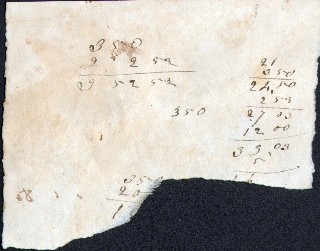 350
2 2 52
29 52 52
350
21
350
24,50
2 53
27 03
12 00
33,03
5
350
20
1